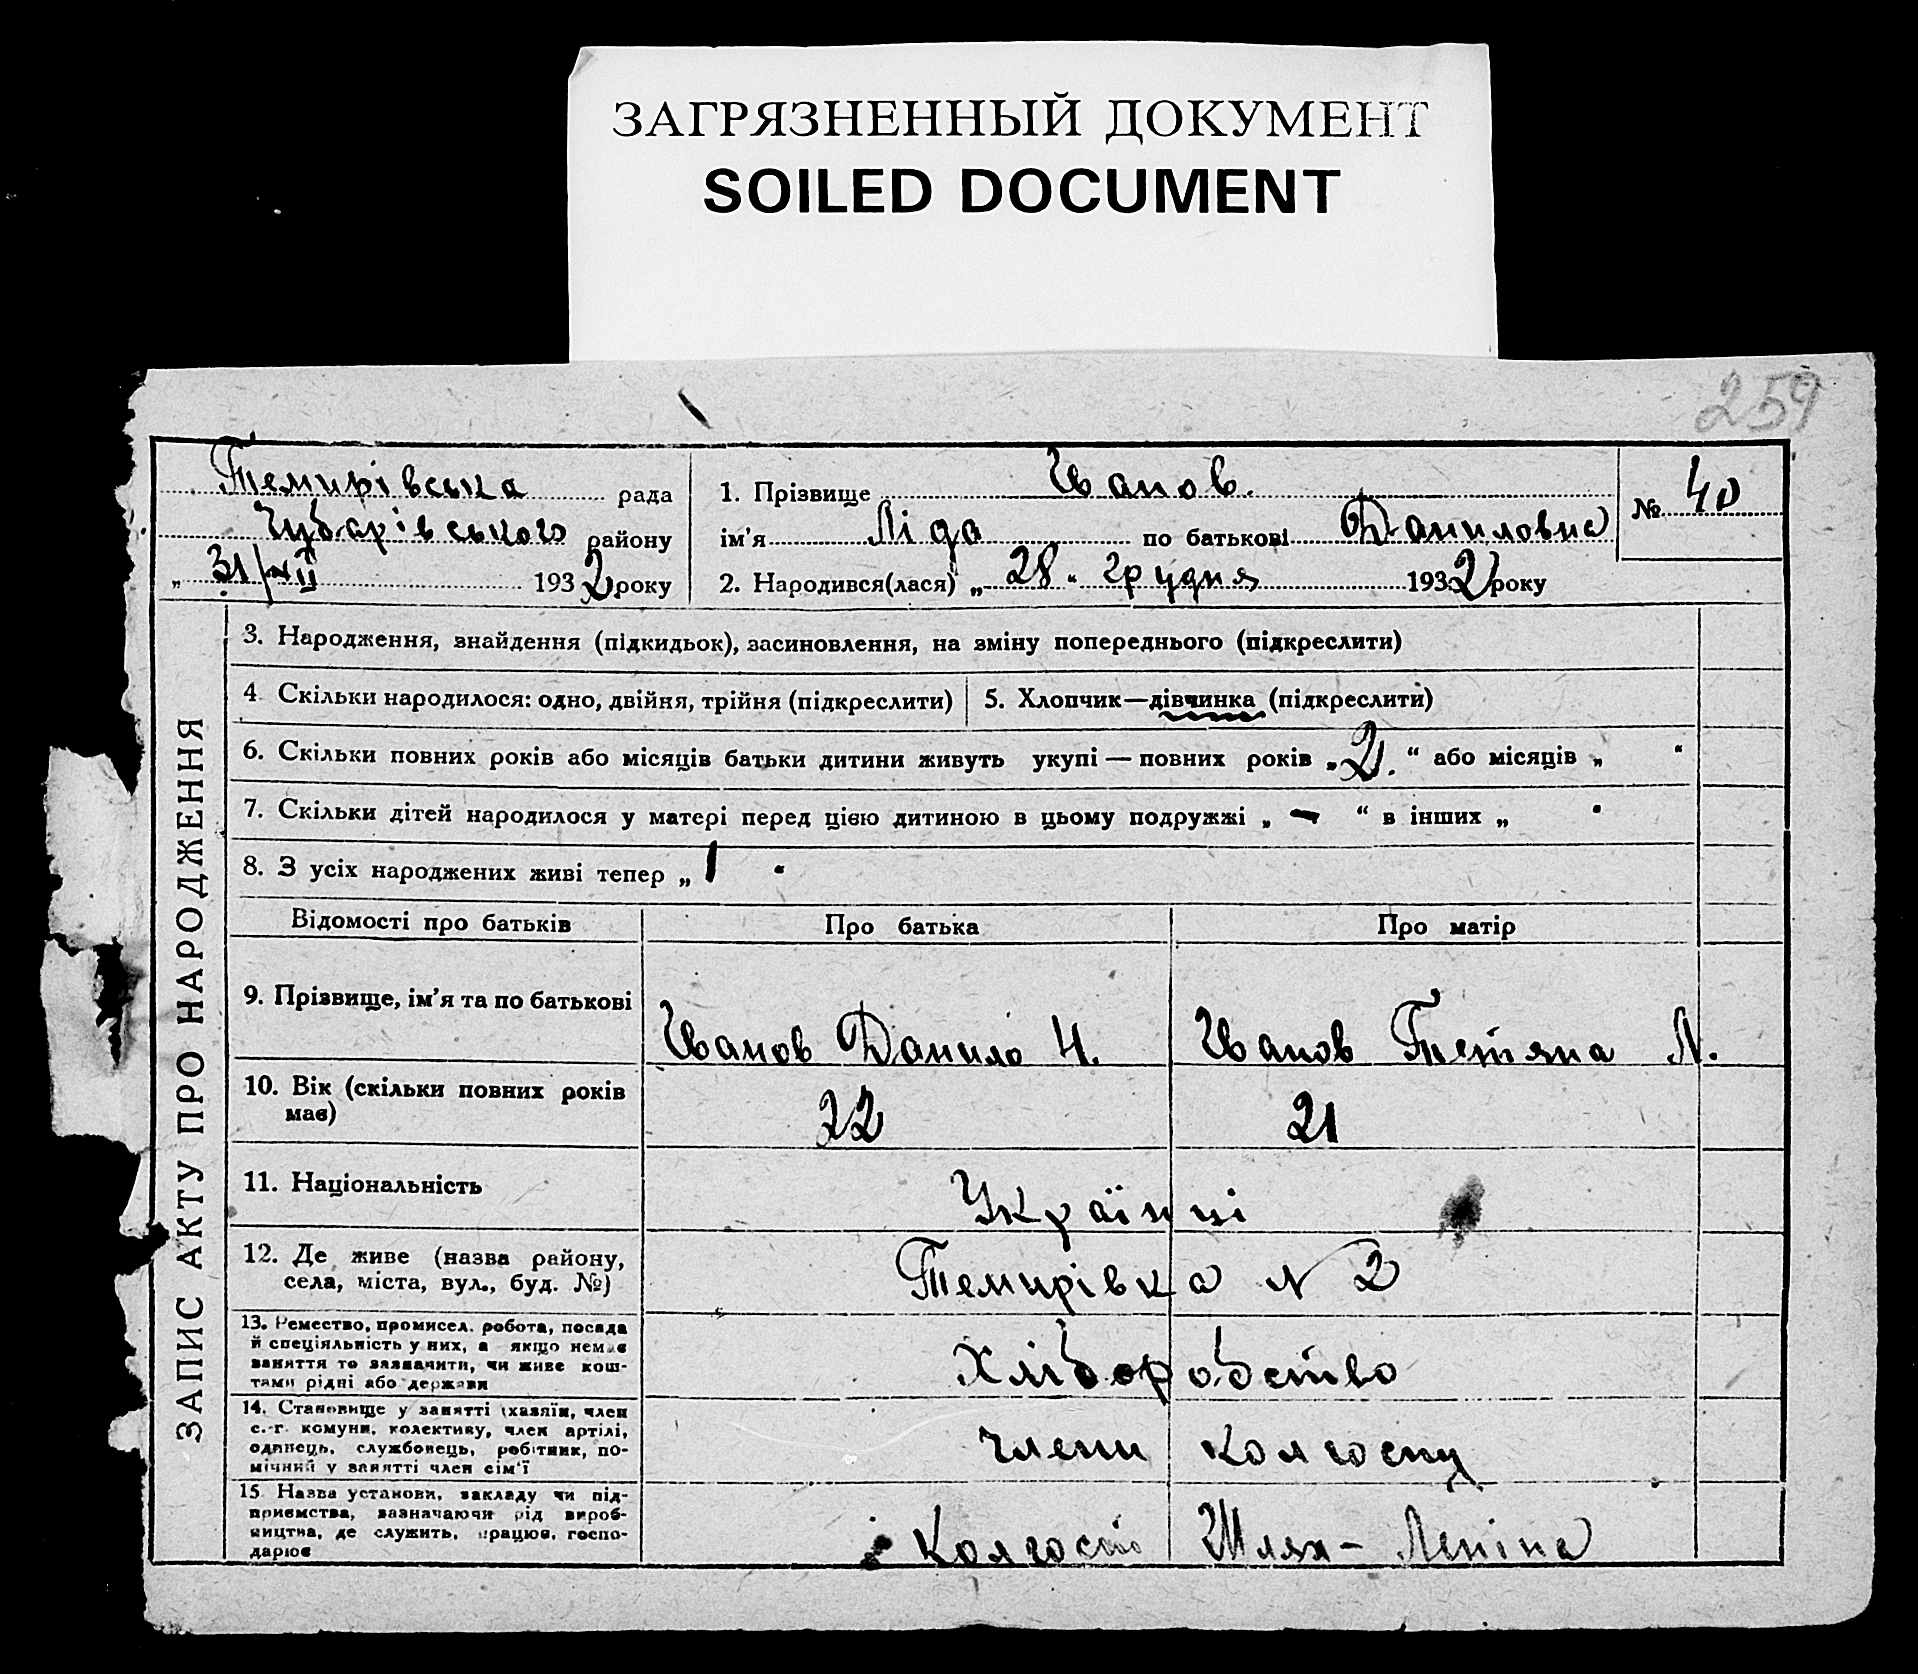 ЗАГРЯЗНЕННЫЙ ДОКУМЕНТ
SOILED DOCUMENT
259
Темирівська рада
Чубарівського району
„ 31/XII 1932 року
1. Прізвище Іванов.
ім'я Ліда по батькові Даниловна
2. Народився(лася) „ 28 " грудня 1932 року
№ 40
ЗАПИС АКТУ ПРО НАРОДЖЕННЯ
3. Народження, знайдення (підкидьок), засиновлення, на зміну попереднього (підкреслити)
4 Скільки народилося: одно, двійня, трійня (підкреслити)
5. Хлопчик—дівчинка (підкреслити)
6. Скільки повних років або місяців батьки дитини живуть укупі — повних років „ 2. “ або місяців „ “
7. Скільки дітей народилося у матері перед цією дитиною в цьому подружжі „ — “ в інших „ “
8. З усіх народжених живі тепер „ 1 “
Відомості про батьків Про батька Про матір
9. Прізвище, ім'я та по батькові Іванов Данило И. Іванов Тетяна Л.
10. Вік (скільки повних років
має) 22 21
11. Національність Українці
12. Де живе (назва району,
села, міста, вул., буд. №) Темирівка № 2
13. Ремество, промисел. робота, посада
й спеціяльність у них, а якщо немає
заняття то зазначити, чи живе кош-
тами рідні або держави
Хліборобство
14. Становище у занятті (хазяїн, член
с.-г. комуни, колективу, член артілі,
одинець, службовець, робітник, по-
мічний у занятті член сім'ї
члени колгоспу
15. Назва установи, закладу чи під-
приємства, зазначаючи рід вироб-
ництва, де служить, працює, госпо-
дарює
Колгосп Шлях - Леніна